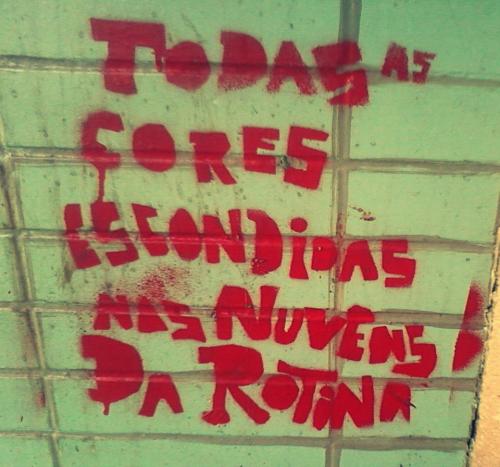 TODAS AS
CORES
ESCONDIDAS
NAS NUVENS
DA ROTINA